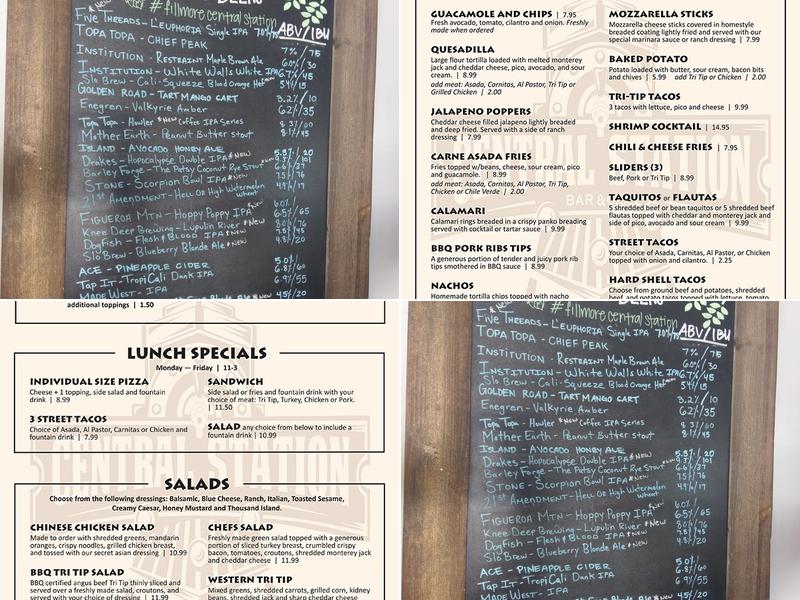 #fillmore central station
ABV/IBU
FIVE THREADS - L'EUPHORIA Single IPA
TOPA TOPA - CHIEF PEAK
INSTITUTION - RESTRAINT Maple Brown Ale
INSTITUTION - White Walls White IPA
Slo Brew - Cali-Squeeze Blood Orange Hef
GOLDEN ROAD - TART MANGO CART
Enegren - Valkyrie Amber
Topa Topa - Howler Coffee IPA Series
Mother Earth - Peanut Butter Stout
ISLAND - AVOCADO HONEY ALE
Drakes - Hopocalypse Double IPA New
Barley Forge - The Patsy Coconut Rye Stout
STONE - Scorpion Bowl IPA New
21st AMENDMENT - Hell OR High Watermelon wheat
FIGUEROA MTN - Hoppy Poppy IPA
Knee Deer Brewing - Lupulin River New
Dogfish - Flesh & BLOOD IPA New
Slo Brew - Blueberry Blonde Ale New
ACE - PINEAPPLE CIDER
Tap It - TropiCali Dank IPA
MADE WEST - IPA
GUACAMOLE AND CHIPS | 7.95
Fresh avocado, tomato, cilantro and onion. Freshly
made when ordered
QUESADILLA
Large flour tortilla loaded with melted monterey
jack and cheddar cheese, pico, avocado, and sour
cream. | 8.99
add meat: Asada, Carnitas, Al Pastor, Tri Tip or
Grilled Chicken | 2.00
JALAPENO POPPERS
Cheddar cheese filled jalapeno lightly breaded
and deep fried. Served with a side of ranch
dressing | 7.99
CARNE ASADA FRIES
Fries topped w/beans, cheese, sour cream, pico
and guacamole. | 8.99
add meat: Asada, Carnitas, Al Pastor, Tri Tip,
Chicken or Chile Verde | 2.00
CALAMARI
Calamari rings breaded in a crispy panko breading
served with cocktail or tartar sauce | 9.99
BBQ PORK RIBS TIPS
A generous portion of tender and juicy pork rib
tips smothered in BBQ sauce | 8.99
NACHOS
Homemade tortilla chips topped with nacho
MOZZARELLA STICKS
Mozzarella cheese sticks covered in homestyle
breaded coating lightly fried and served with our
special marinara sauce or ranch dressing | 7.99
BAKED POTATO
Potato loaded with butter, sour cream, bacon bits
and chives | 5.99 add Tri Tip or Chicken | 2.00
TRI-TIP TACOS
3 tacos with lettuce, pico and cheese | 9.99
SHRIMP COCKTAIL | 14.95
CHILI & CHEESE FRIES | 7.95
SLIDERS (3)
Beef, Pork or Tri Tip | 8.99
TAQUITOS or FLAUTAS
5 shredded beef or bean taquitos or 5 shredded beef
flautas topped with cheddar and monterey jack and
side of pico, avocado and sour cream | 9.99
STREET TACOS
Your choice of Asada, Carnitas, Al Pastor, or Chicken
topped with onion and cilantro. | 2.25
HARD SHELL TACOS
Choose from ground beef and potatoes, shredded
beef, and potato tacos topped with lettuce, tomato
additional toppings | 1.50
LUNCH SPECIALS
Monday — Friday | 11-3
INDIVIDUAL SIZE PIZZA
Cheese + 1 topping, side salad and fountain
drink | 8.99
3 STREET TACOS
Choice of Asada, Al Pastor, Carnitas or Chicken and
fountain drink | 7.99
SANDWICH
Side salad or fries and fountain drink with your
choice of meat: Tri Tip, Turkey, Chicken or Pork.
| 11.50
SALAD any choice from below to include a
fountain drink | 10.99
CENTRAL STATION
SALADS
Choose from the following dressings: Balsamic, Blue Cheese, Ranch, Italian, Toasted Sesame,
Creamy Caesar, Honey Mustard and Thousand Island.
CHINESE CHICKEN SALAD
Made to order with shredded greens, mandarin
oranges, crispy noodles, grilled chicken breast,
and tossed with our secret asian dressing | 10.99
BBQ TRI TIP SALAD
BBQ certified angus beef Tri Tip thinly sliced and
served over a freshly made salad, croutons, and
served with your choice of dressing | 11.99
CHEFS SALAD
Freshly made green salad topped with a generous
portion of sliced turkey breast, crumbled crispy
bacon, tomatoes, croutons, shredded monterey jack
and cheddar cheese | 11.99
WESTERN TRI TIP
Mixed greens, shredded carrots, grilled corn, kidney
beans, shredded jack and sharp cheddar cheese
#fillmore central station
ABV/IBU
FIVE THREADS - L'EUPHORIA Single IPA
TOPA TOPA - CHIEF PEAK
INSTITUTION - RESTRAINT Maple Brown Ale
INSTITUTION - White Walls White IPA
Slo Brew - Cali-Squeeze Blood Orange Hef
GOLDEN ROAD - TART MANGO CART
Enegren - Valkyrie Amber
Topa Topa - Howler Coffee IPA Series
Mother Earth - Peanut Butter Stout
ISLAND - AVOCADO HONEY ALE
Drakes - Hopocalypse Double IPA New
Barley Forge - The Patsy Coconut Rye Stout
STONE - Scorpion Bowl IPA New
21st AMENDMENT - Hell OR High Watermelon wheat
FIGUEROA MTN - Hoppy Poppy IPA
Knee Deer Brewing - Lupulin River New
Dogfish - Flesh & BLOOD IPA New
Slo Brew - Blueberry Blonde Ale New
ACE - PINEAPPLE CIDER
Tap It - TropiCali Dank IPA
MADE WEST - IPA